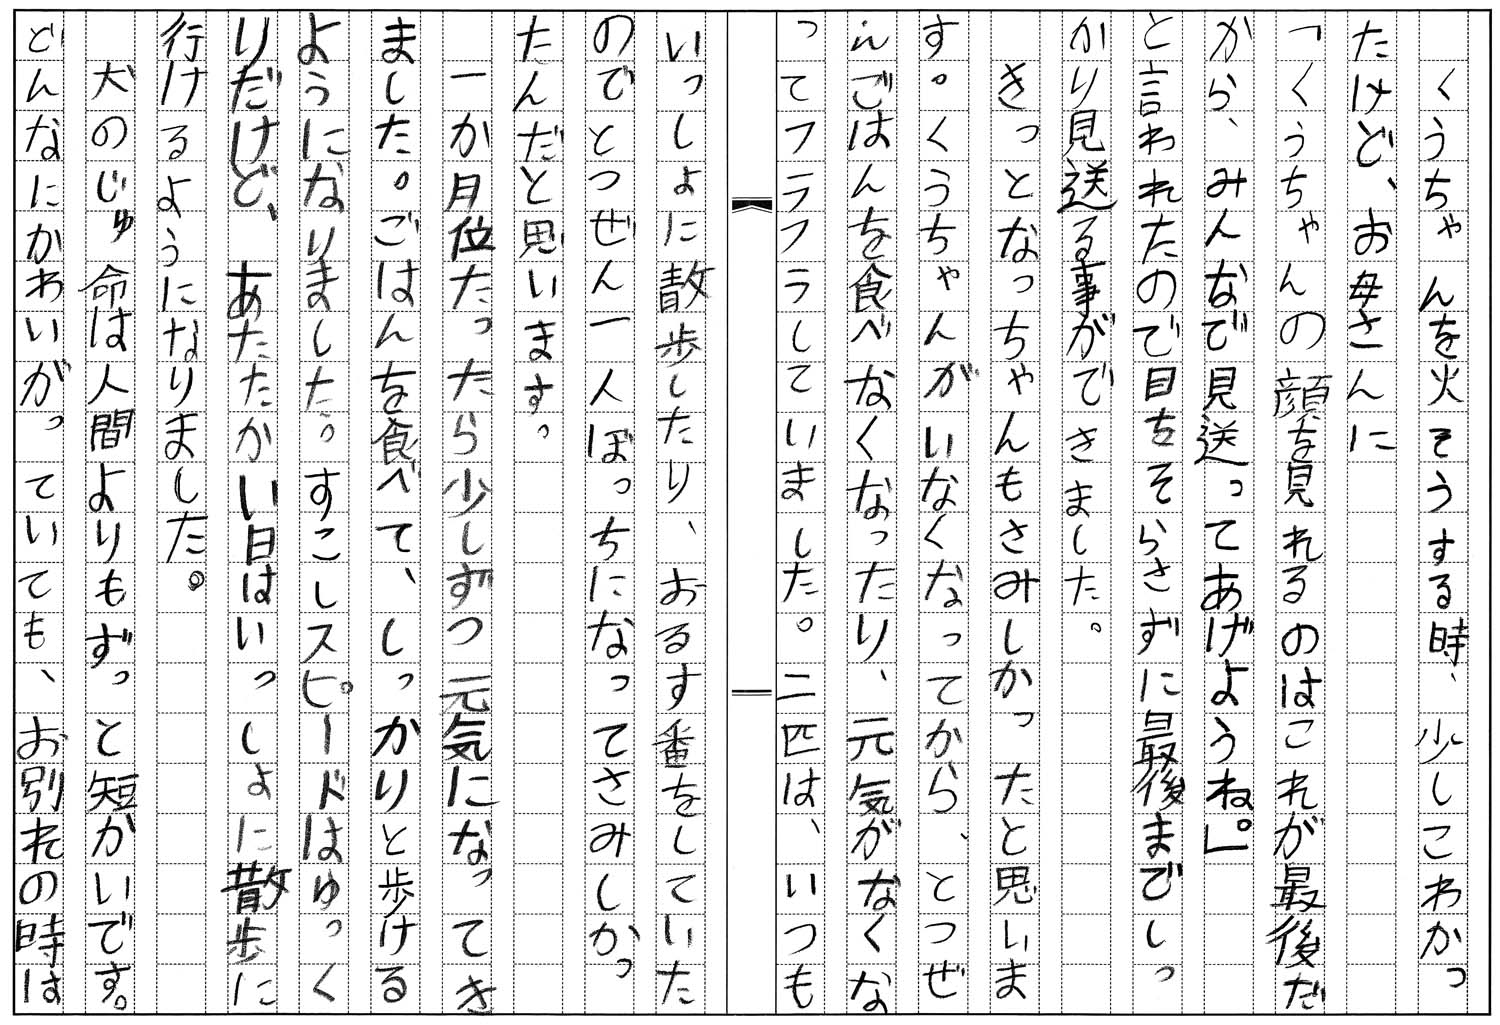 くうちゃんを火そうする時、少しこわかっ
たけど、お母さんに
「くうちゃんの顔を見れるのはこれが最後だ
から、みんなで見送ってあげようね。」
と言われたので目をそらさずに最後までしっ
かり見送る事ができました。
きっとなっちゃんもさみしかったと思いま
す。くうちゃんがいなくなってから、とつぜ
んごはんを食べなくなったり、元気がなくな
ってフラフラしていました。二匹は、いつも
いっしょに散歩したり、おるす番をしていた
のでとつぜん一人ぼっちになってさみしかっ
たんだと思います。
一か月位たったら少しずつ元気になってき
ました。ごはんを食べて、しっかりと歩ける
ようになりました。すこしスピードはゆっく
りだけど、あたたかい日はいっしょに散歩に
行けるようになりました。
犬のじゅ命は人間よりもずっと短かいです。
どんなにかわいがっていても、お別れの時は